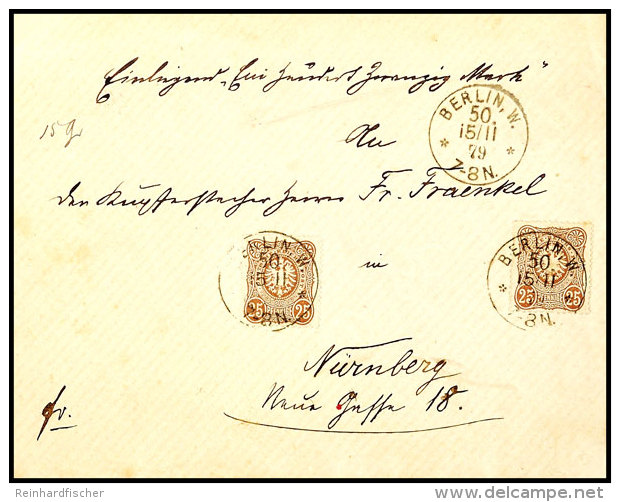 Einliegend „Ein Hundert Zwanzig Mark“
BERLIN, W.
50.
15/11
79
7-8N.
15 g
An
den Kupferstecher Herrn Fr. Fraenkel
BERLIN, W.
50
15 11
7-8N.
25 25
in
BERLIN, W.
50
15 11
7-8N.
25 PFENNIG 25
Nürnberg
Neue Gasse 18.
fr.
Reinhardfischer
delcampe.net